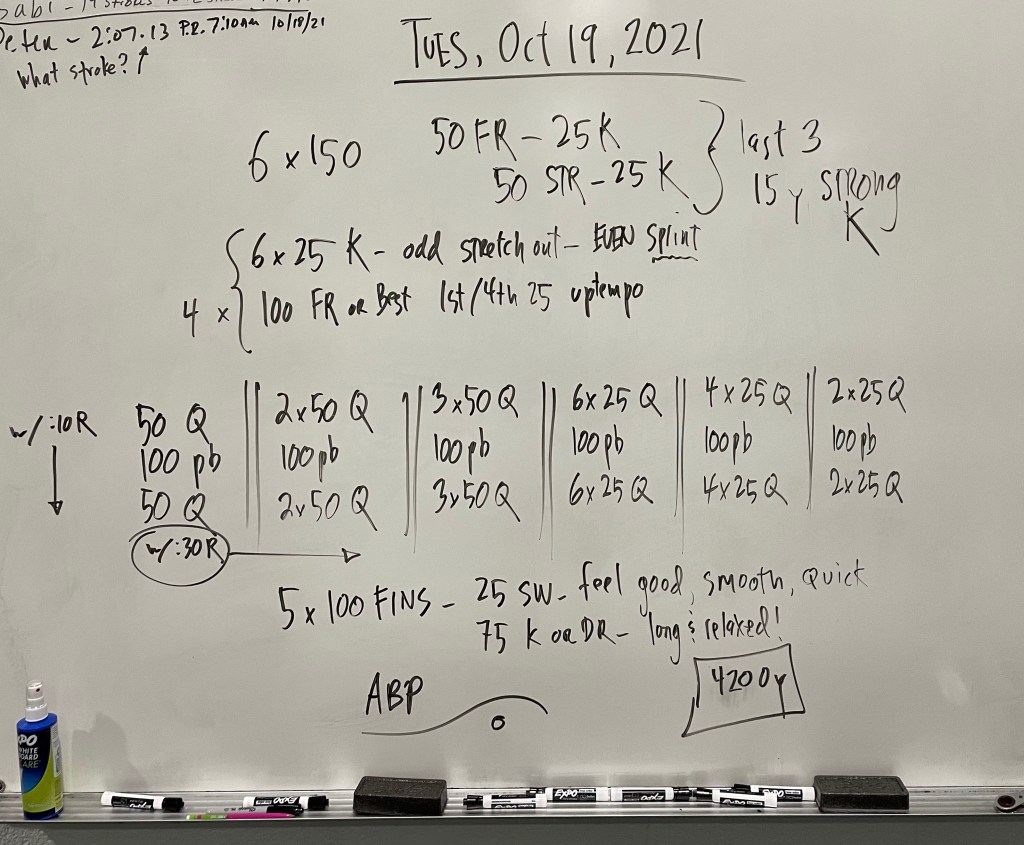 Peter - 2:07.13 P.R. 7:10am 10/18/21
What stroke?
TUES, Oct 19, 2021
6 x 150 50 FR - 25 K
50 STR - 25 K
last 3
15 y STRONG
K
4 x
6 x 25 K - odd stretch out - EVEN Sprint
100 FR or Best 1st/4th 25 uptempo
w/ :10R
50 Q
100 pb
50 Q
w/ :30R
2x50 Q
100 pb
2x50 Q
3x50 Q
100 pb
3x50 Q
6x25 Q
100 pb
6x25 Q
4x25 Q
100 pb
4x25 Q
2x25 Q
100 pb
2x25 Q
5 x 100 FINS - 25 SW - feel good, smooth, quick
75 K or DR - long & relaxed!
ABP
4200y
EXPO
WHITE
BOARD
CARE
EXPO